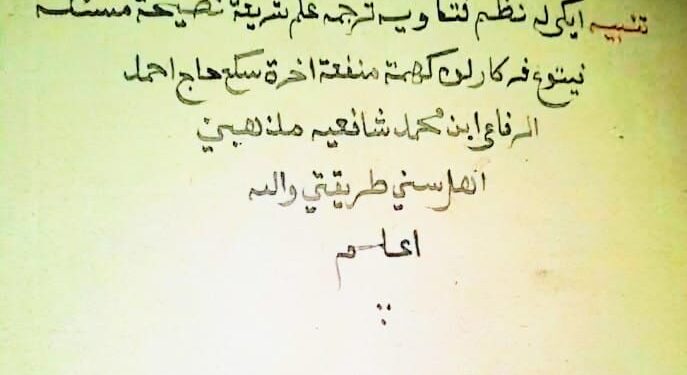 تنبيه ايكي له نظم فتاويه ترجمه علم شريعة نصيحة مسئله
نيتوع فه كارلون كهمتة منفعة اخرة سكع حاج احمد
الرفاعي ابن محمد شافعيه مذهبي
اهل سني طريقتي والله
اعلم